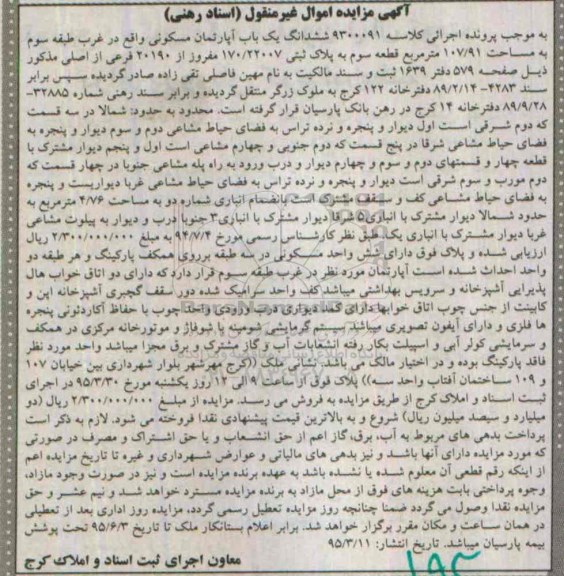 آگهی مزایده اموال غیرمنقول (اسناد رهنی)
به موجب پرونده اجرائی کلاسه ۹۳۰۰۰۹۱ ششدانگ یک باب آپارتمان مسکونی واقع در غرب طبقه سوم
به مساحت ۱۰۷/۹۱ مترمربع قطعه سوم به پلاک ثبتی ۱۷۰/۲۲۰۰۷ مفروز از ۲۰۱۹۰ فرعی از اصلی مذکور
ذیل صفحه ۵۷۹ دفتر ۱۶۳۹ ثبت و سند مالکیت به نام مهین فاصلی تقی زاده صادر گردیده سپس برابر
سند ۴۲۸۳- ۸۹/۲/۱۴ دفترخانه ۱۲۲ کرج به ملوک زرگر منتقل گردیده و برابر سند رهنی شماره ۳۲۸۸۵-
۸۹/۹/۲۸ دفترخانه ۱۴ کرج در رهن بانک پارسیان قرار گرفته است. محدود به حدود: شمالا در سه قسمت
که دوم شرقی است اول دیوار و پنجره و نرده تراس به فضای حیاط مشاعی دوم و سوم دیوار و پنجره به
فضای حیاط مشاعی شرقا در پنج قسمت که دوم جنوبی و چهارم مشاعی است اول و پنجم دیوار مشترک با
قطعه چهار و قسمتهای دوم و سوم و چهارم دیوار و درب ورود به راه پله مشاعی جنوبا در چهار قسمت که
دوم مورب و سوم شرقی است دیوار و پنجره و نرده تراس به فضای حیاط مشاعی غربا دیواریست و پنجره
به فضای حیاط مشاعی کف و سقف مشترک است بانضمام انباری شماره دو به مساحت ۴/۷۶ مترمربع به
حدود شمالا دیوار مشترک با انباری۵ شرقا دیوار مشترک با انباری۳ جنوبا درب و دیوار به پیلوت مشاعی
غربا دیوار مشترک با انباری یک طبق نظر کارشناس رسمی مورخ ۹۴/۷/۴ به مبلغ ۲/۳۰۰/۰۰۰/۰۰۰ ریال
ارزیابی شده و پلاک فوق دارای شش واحد مسکونی در سه طبقه برروی همکف پارکینگ و هر طبقه دو
واحد احداث شده است آپارتمان مورد نظر در غرب طبقه سوم قرار دارد که دارای دو اتاق خواب هال
پذیرایی آشپزخانه و سرویس بهداشتی میباشد کف واحد سرامیک شده دور سقف گچبری آشپزخانه اپن و
کابینت از جنس چوب اتاق خوابها دارای کمد دیواری درب ورودی واحد چوب با حفاظ آکاردئونی پنجره
ها فلزی و دارای آیفون تصویری میباشد سیستم گرمایشی شومینه یا شوفاژ و موتورخانه مرکزی در همکف
و سرمایشی کولر آبی و اسپیلت بکار رفته انشعابات آب و گاز مشترک و برق مجزا میباشد واحد مورد نظر
فاقد پارکینگ بوده و در اختیار مالک می باشد. نشانی ملک ((کرج مهرشهر بلوار شهرداری بین خیابان ۱۰۷
و ۱۰۹ ساختمان آفتاب واحد سه)) پلاک فوق از ساعت ۹ الی ۱۲ روز یکشنبه مورخ ۹۵/۳/۳۰ در اجرای
ثبت اسناد و املاک کرج از طریق مزایده به فروش می رسد. مزایده از مبلغ ۲/۳۰۰/۰۰۰/۰۰۰ ریال (دو
میلیارد و سیصد میلیون ریال) شروع و به بالاترین قیمت پیشنهادی نقدا فروخته می شود. لازم به ذکر است
پرداخت بدهی های مربوط به آب، برق، گاز اعم از حق انشعاب و یا حق اشتراک و مصرف در صورتی
که مورد مزایده دارای آنها باشد و نیز بدهی های مالیاتی و عوارض شهرداری و غیره تا تاریخ مزایده اعم
از اینکه رقم قطعی آن معلوم شده یا نشده باشد به عهده برنده مزایده است و نیز در صورت وجود مازاد،
وجوه پرداختی بابت هزینه های فوق از محل مازاد به برنده مزایده مسترد خواهد شد و نیم عشر و حق
مزایده نقدا وصول می گردد ضمنا چنانچه روز مزایده تعطیل رسمی گردد، مزایده روز اداری بعد از تعطیلی
در همان ساعت و مکان مقرر برگزار خواهد شد. برابر اعلام بستانکار ملک تا تاریخ ۹۵/۶/۳ تحت پوشش
بیمه پارسیان میباشد. تاریخ انتشار: ۹۵/۳/۱۱
معاون اجرای ثبت اسناد و املاک کرج